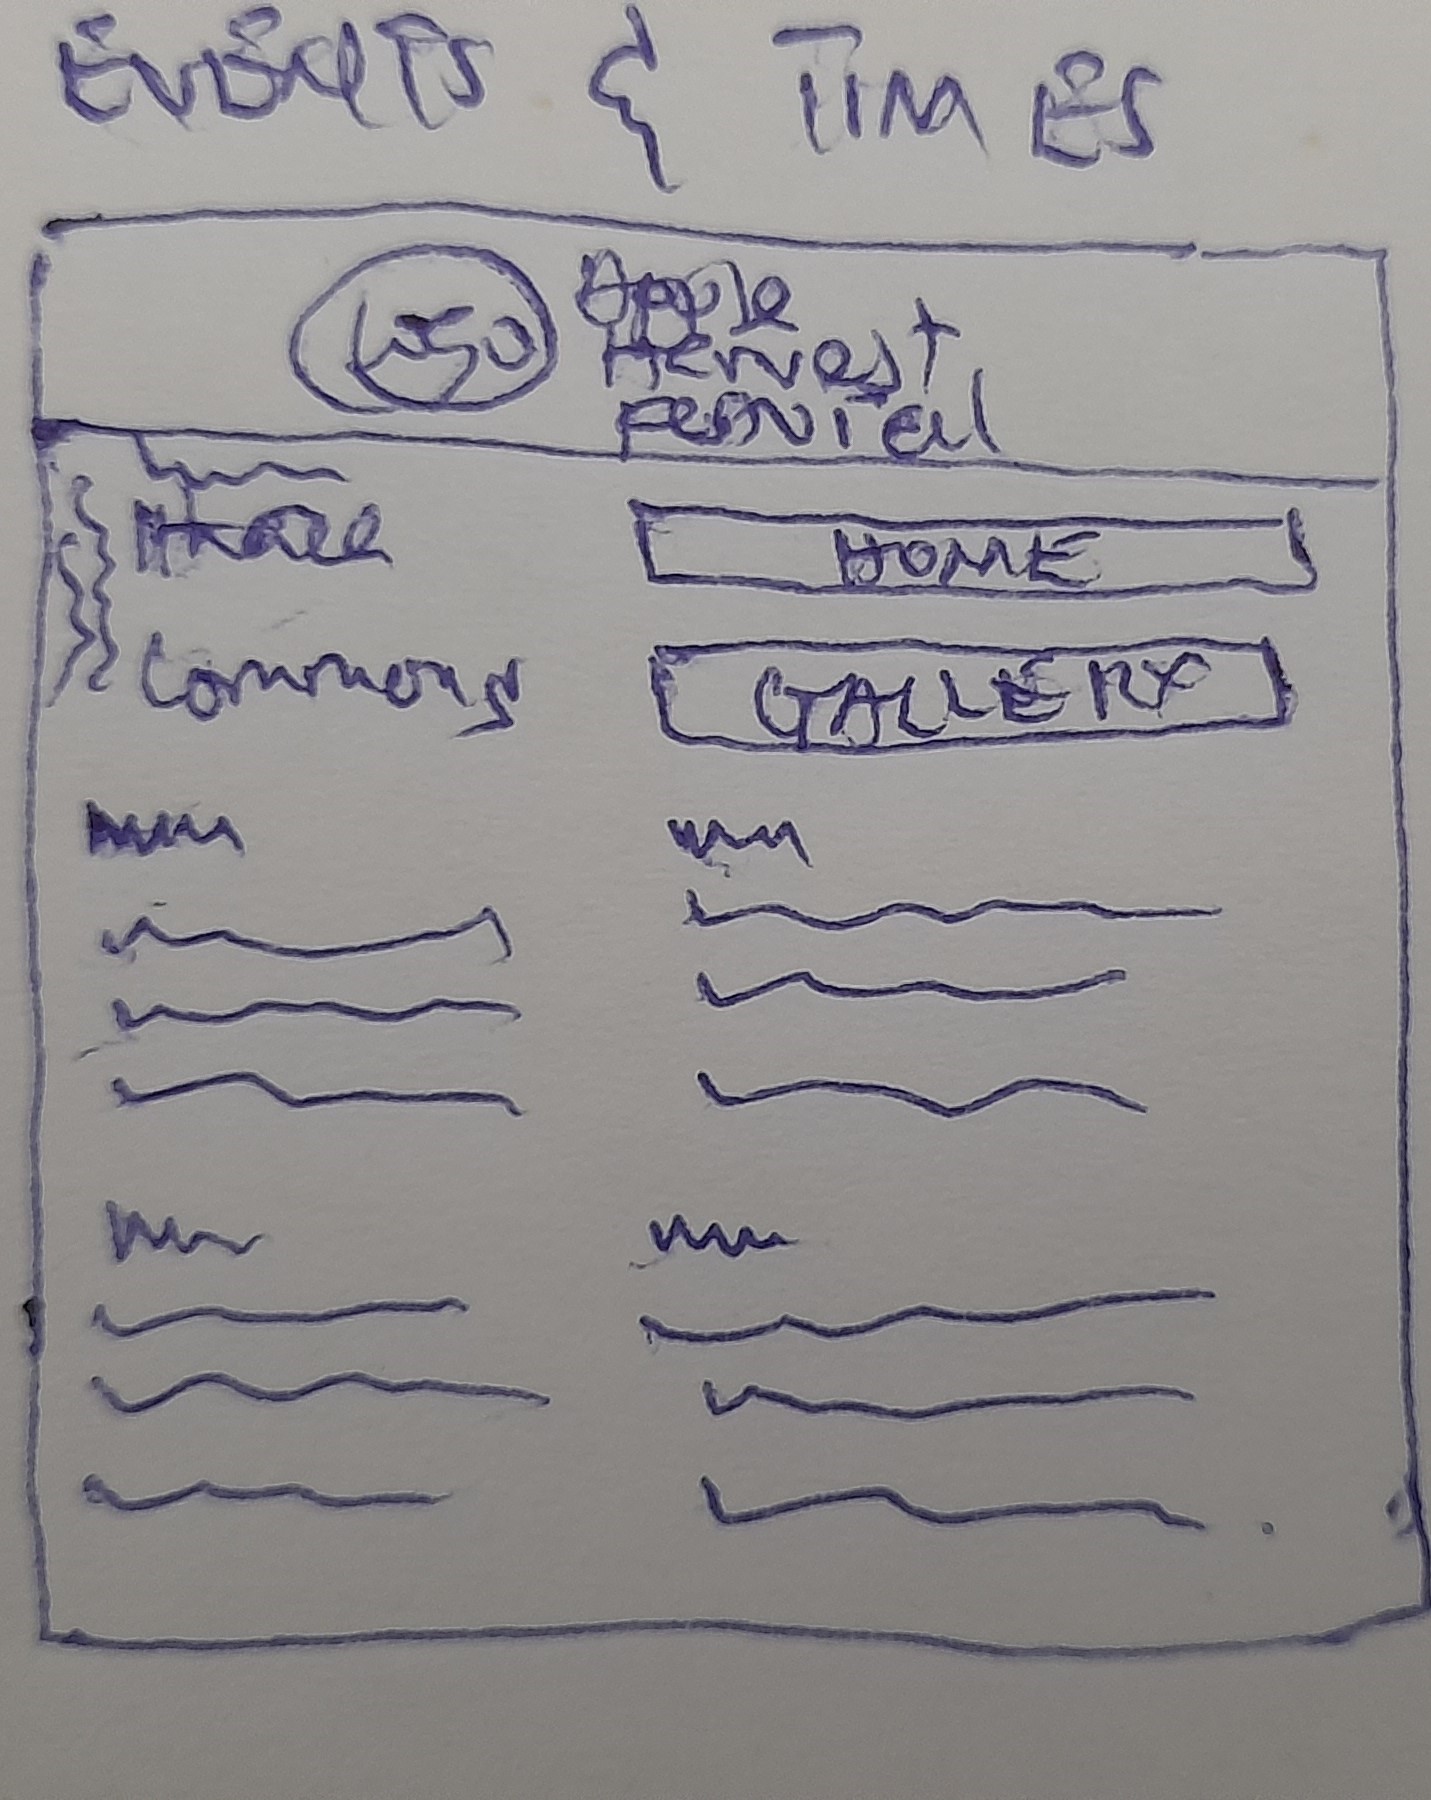 EVENTS & TIMES
LOGO
Apple
Harvest
Festival
HOME
GALLERY